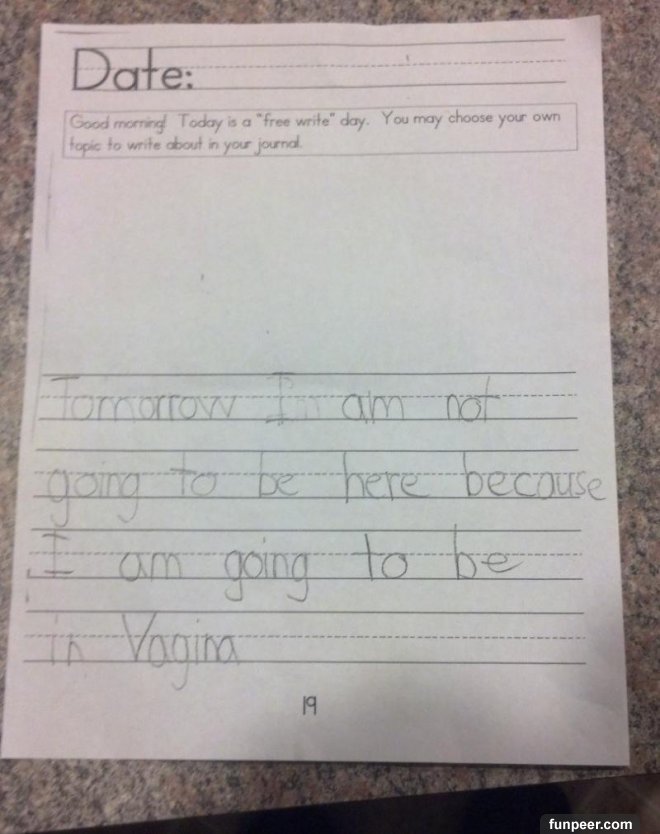 Date:
Good morning! Today is a "free write" day. You may choose your own
topic to write about in your journal.
Tomorrow I am not
going to be here because
I am going to be
in Vagina
19
funpeer.com